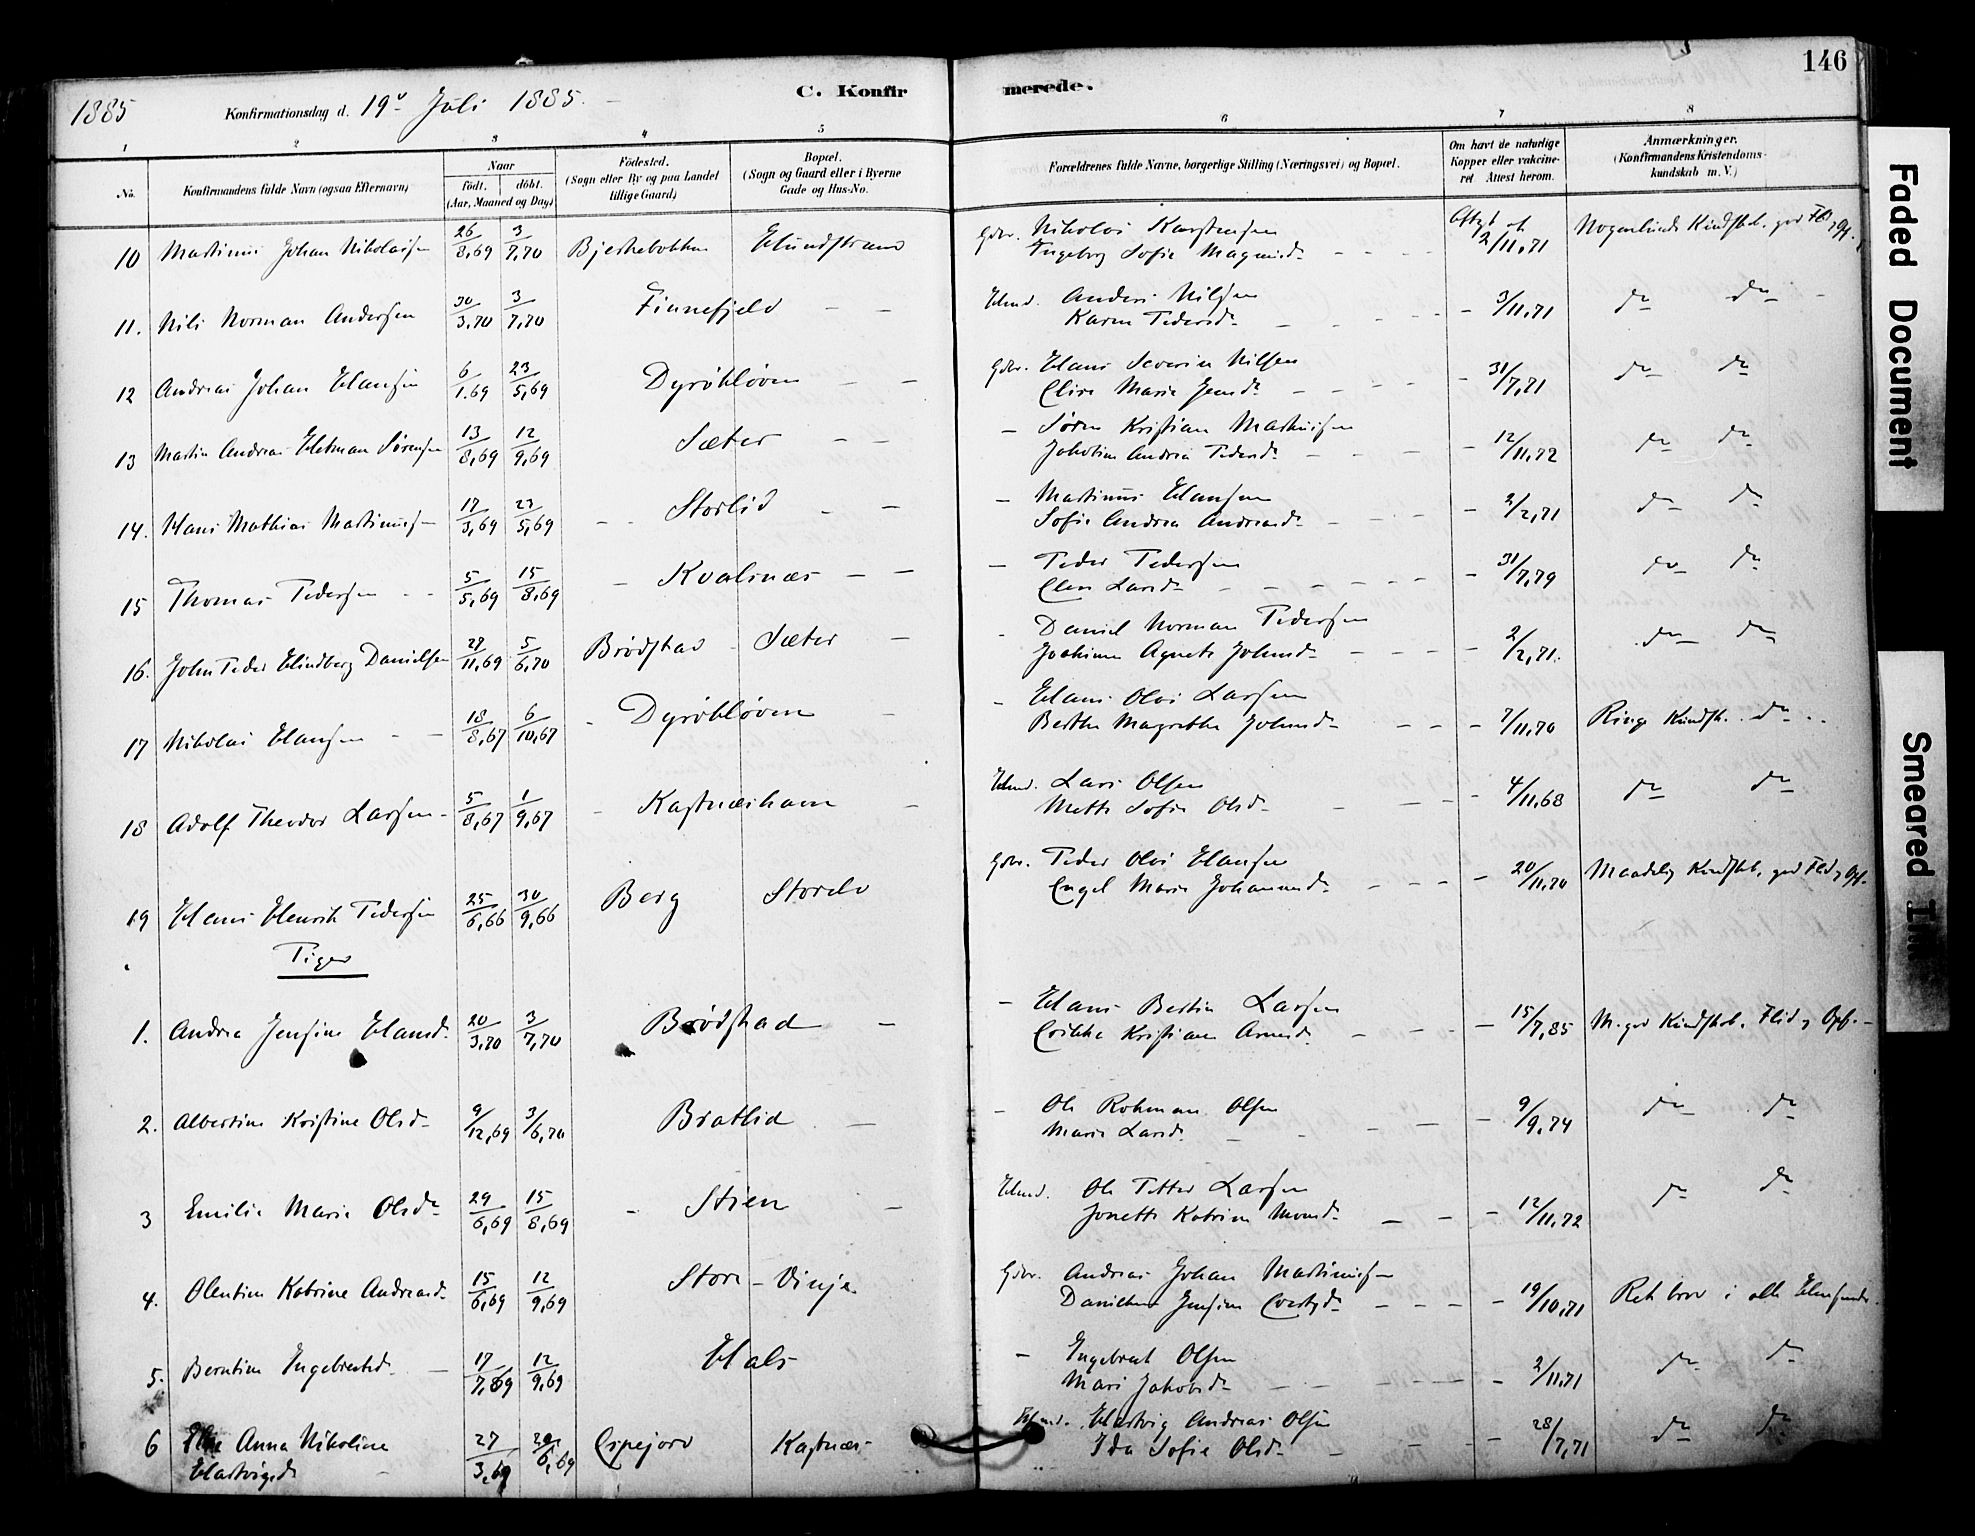 146
1885
Konfirmationsdag d. 19de Juli 1885.
C. Konfirmerede.
1 2 3 4 5 6 7 8
No.
Konfirmandens fulde Navn (ogsaa Efternavn)
Naar
født. døbt.
(Aar, Maaned og Dag)
Fødested.
(Sogn eller By og paa Landet
tillige Gaard)
Bopæl.
(Sogn og Gaard eller i Byerne
Gade og Hus-No.
Forældrenes fulde Navne, borgerlige Stilling (Næringsvei) og Bopæl.
Om havt de naturlige
Kopper eller vakcine-
ret Attest herom.
Anmærkninger.
(Konfirmandens Kristendoms-
kundskab m. V.)
10 Martinus Johan Nikolaisen 26/8,69 3/7,70 Gbr. Nikolai Karstensen 2/11,71
Ingeborg Sofie Magnusd.
11. Nils Norman Andersen 30/3,70 3/7,70 Finnefjeld - - Husmd. Anders Nilsen - 3/11,71 do do
Karen Pedersd. -
12 Andreas Johan Hansen 6/1.69 23/5,69 Dyrökløven - - Gbr. Hans Severin Nilsen - 31/7,71 do do
Marie Jensd.
13 Martin Andreas Hetman Sörensen 13/8,69 12/9,69 Sæter - - - Sören Kristian Martinisen - 12/11,72 do do
Andrea Pedersd.
14. Hans Mathias Martinusen 17/3,69 23/5,69 - - Storlid - - - Martinus Hansen - 2/2,71 do do
Sofie Andrea Andreasd.
15 Thomas Pedersen - - 5/5,69 15/8,69 - Kvalsnæs - - - Peder Pedersen - 31/7,79 do do
Elen Larsd. -
16. John Peder Hindberg Danielsen 28/11,69 5/6,70 Brödstad - Sæter - - Daniel Norman Pedersen - 2/2,71. do do
Agnete Johnsd.
17 Nikolai Hansen - - 18/8,67 6/10,67 - Dyrökløven - - Hans Olai Larsen - 7/11,70 Ringe Kundsk. do
Berthe Magrethe Johnsd.
18 Adolf Theodor Larsen - 5/8,67 1/9,67 - Kastnæshavn - Husmd. Lars Olsen - 4/11,68 do do
Mette Sofie Olsd.
19 Hans Henrik Pedersen 25/6,66 30/9,66 Berg Storelv Gbr. Peder Olai Hansen - 20/11,70 Maadelig Kundskb. god Flid og Opf.
Engel Marie Johannesd.
Piger
1. Andrea Jensine Hansd. 20/3,70 3/7,70 Brödstad - - Hans Bertin Larsen - 15/7,85 M. god Kundskab. Flid og Opf.
Erikka Kristiane Arnesd.
2. Albertine Kristine Olsd. 9/12,69 3/6,70 Bratlid - - Ole Rohman Olsen - 9/9,74 do do
Marie Larsd.
3 Emilie Marie Olsd. 29/6,69 15/8,69 - Stien - Husmd. Ole Petter Larsen - 12/11,72 do do
Jonette Katrine Monsd.
4. Olentine Katrine Andreasd. 15/6,69 12/9,69 Store-Vinje Gbr. Andreas Johan Martinusen - 19/10,71 Ret brav i alle Henseender.
Jensine
5. Berntine Ingebrektsd. - 17/7,69 12/9,69 Hals - Ingebrekt Olsen - 2/11,71 do do
Mari Jakobsd.
6 Anna Nikoline 27/3,69 20/6,69 Espejord Kastnæs- Husmd. Hartvig Andreas Olsen - 28/7,71 do do
Hartvigsd. Ida Sofie Olsd.
Faded Document
Smeared Ink